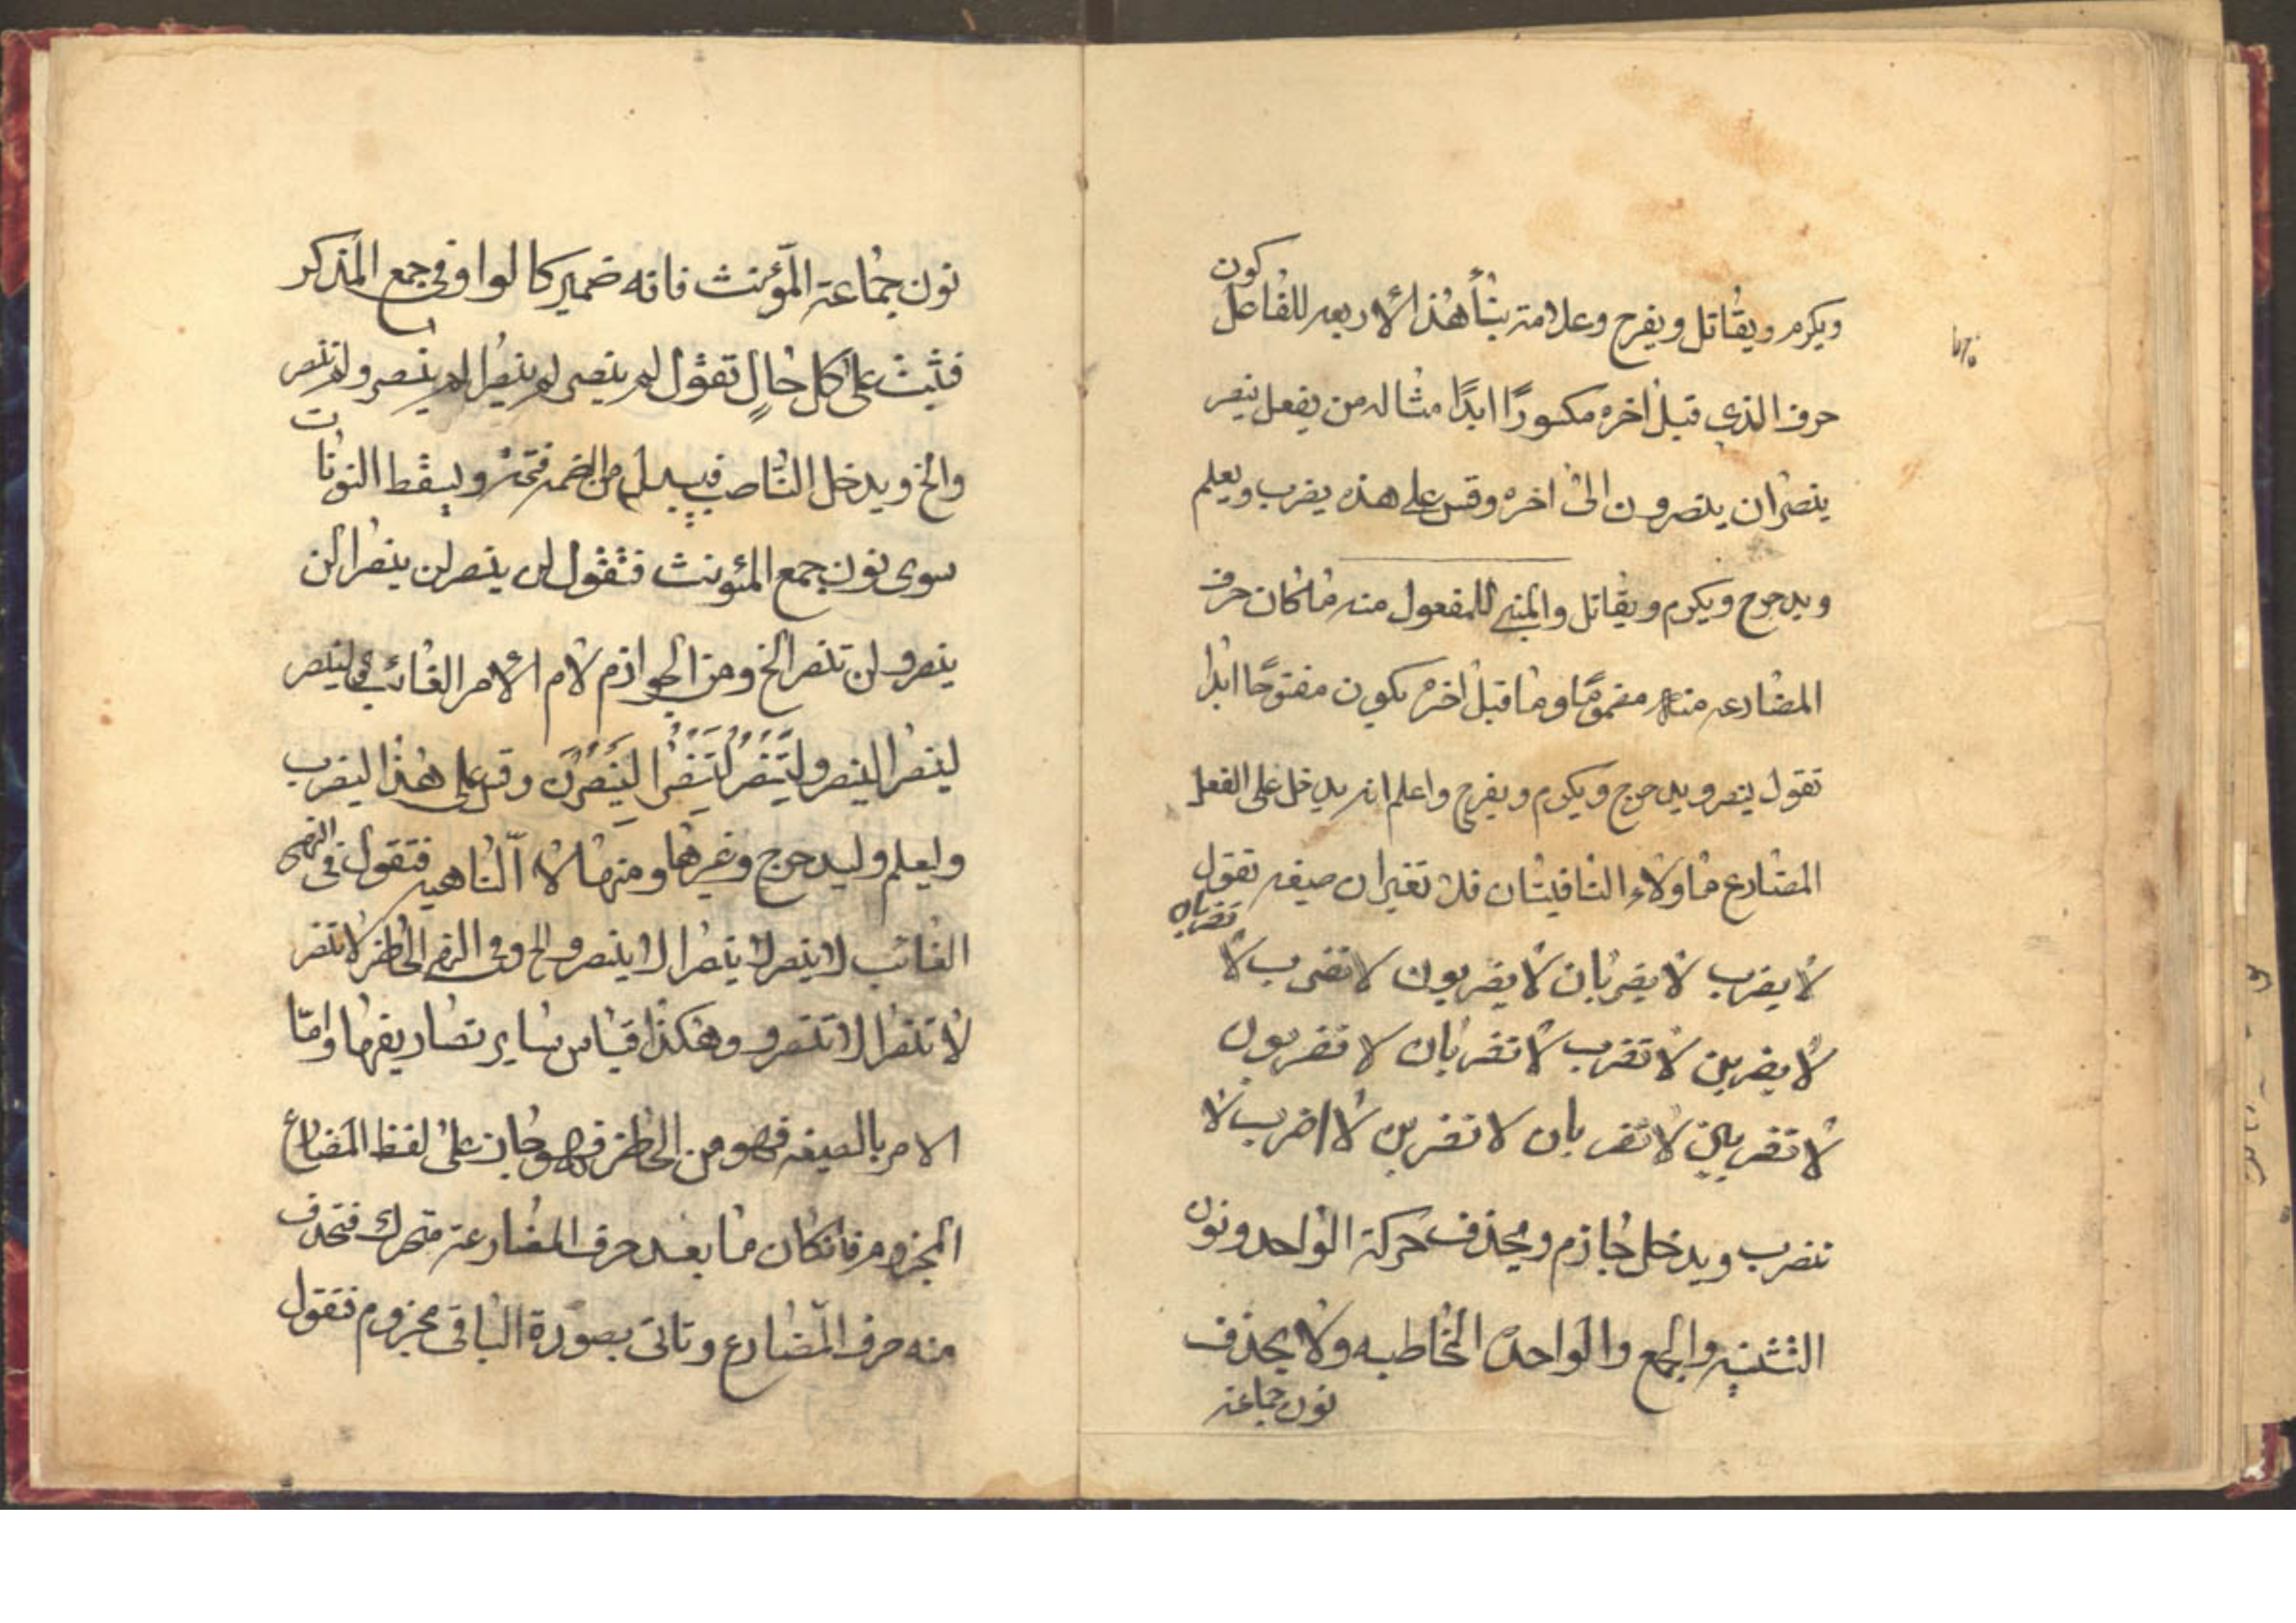 ويكرم ويقاتل ويفرح وعلامة بناء هذا الاربعه للفاعل كون
حرف الذي قبل اخره مكسورًا ابدًا مثاله من يفعل ينصر
ينصران ينصرون الى اخره وقس على هذه يضرب ويعلم
ويدحرج ويكرم ويقاتل والمبني للمفعول منه ما كان حرف
المضارعه منه مضمومًا وما قبل اخره يكون مفتوحًا ابدا
تقول ينصر ويدحرج ويكرم ويفرح واعلم انه يدخل على الفعل
المضارع ما ولاء النافيتان فلا تغيران صيغه تقول
لا يضرب لا يضربان لا يضربون لا تضرب لا تضربان
لا يضربن لا تضرب لا تضربان لا تضربون
لا تضربين لا تضربان لا تضربن لا اضرب لا
نضرب ويدخل جازم ويحذف حركة الواحد ونون
التثنيه والجمع والواحدة المخاطبه ولا يحذف
نون جماعة
نون جماعة المؤنث فانه ضمير كالواو في جمع المذكر
فتثبت على كل حالٍ تقول لم ينصر لم ينصرا لم ينصرو لم تنصر
والخ ويدخل الناصب فيبدل من الضمه فتحة ويسقط النونات
سوى نون جمع المئونث فتقول لن ينصر لن ينصرا لن
ينصرو لن تنصر الخ ومن الجوازم لام الامر الغائب في لينصر
لينصرا لينصرو لِتَنْصُرْ لِتَنْصُرا لِيَنْصُرْنَ وقس على هذا ليضرب
وليعلم وليدحرج وغيرها ومنها لاء الناهيه فتقول في النهي
الغائب لا ينصر لا ينصرا لا ينصرو الخ وفي النهي الحاضر لا تنصر
لا تنصرا لا تنصرو وهكذا قياس ساير تصاريفها وامّا
الامر بالصيغه فهو من الحاضر فهو جاز على لفظ المضارع
المجزوم فانكان ما بعد حرف المضارعة متحرك فتحذف
منه حرف المضارع وتاتى بصورة الباقى مجزوم فتقول